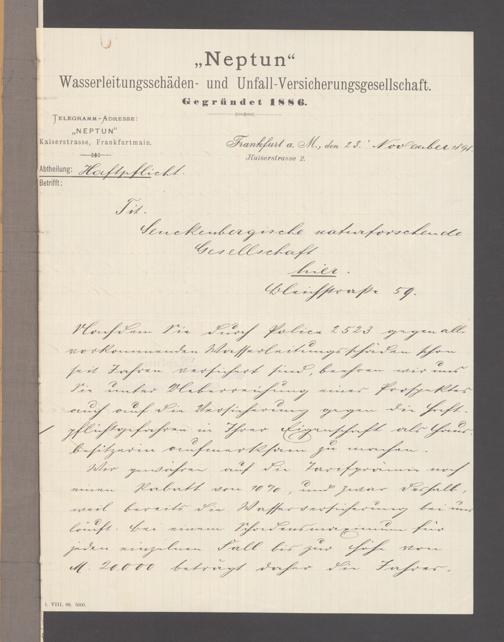 „Neptun“
Wasserleitungsschäden- und Unfall-Versicherungsgesellschaft.
Gegründet 1886.
Telegramm-Adresse:
„NEPTUN“
Kaiserstrasse, Frankfurtmain.
Frankfurt a. M., den 23. November 189
Kaiserstrasse 2.
Abtheilung: Haftpflicht.
Betrifft:
Tit.
Senckenbergische naturforschende
Gesellschaft
hier.
Bleichstraße 59.
Nachdem Sie durch Police 2523 gegen alle
vorkommenden Wasserleitungsschäden schon
seit Jahren versichert sind, beehren wir uns
Sie unter Ueberreichung eines Prospektes
auch auf die Versicherung gegen die Haft-
pflichtgefahren in Ihrer Eigenschaft als Haus-
besitzerin aufmerksam zu machen.
Wir gewähren auf die Tarifprämie noch
einen Rabatt von 10%, und zwar deshalb,
weil bereits die Wasserversicherung bei uns
läuft. Bei einem Schadensmaximum für
jeden einzelnen Fall bis zur Höhe von
M. 20000 beträgt daher die Jahres-
1. VIII. 96. 5000.